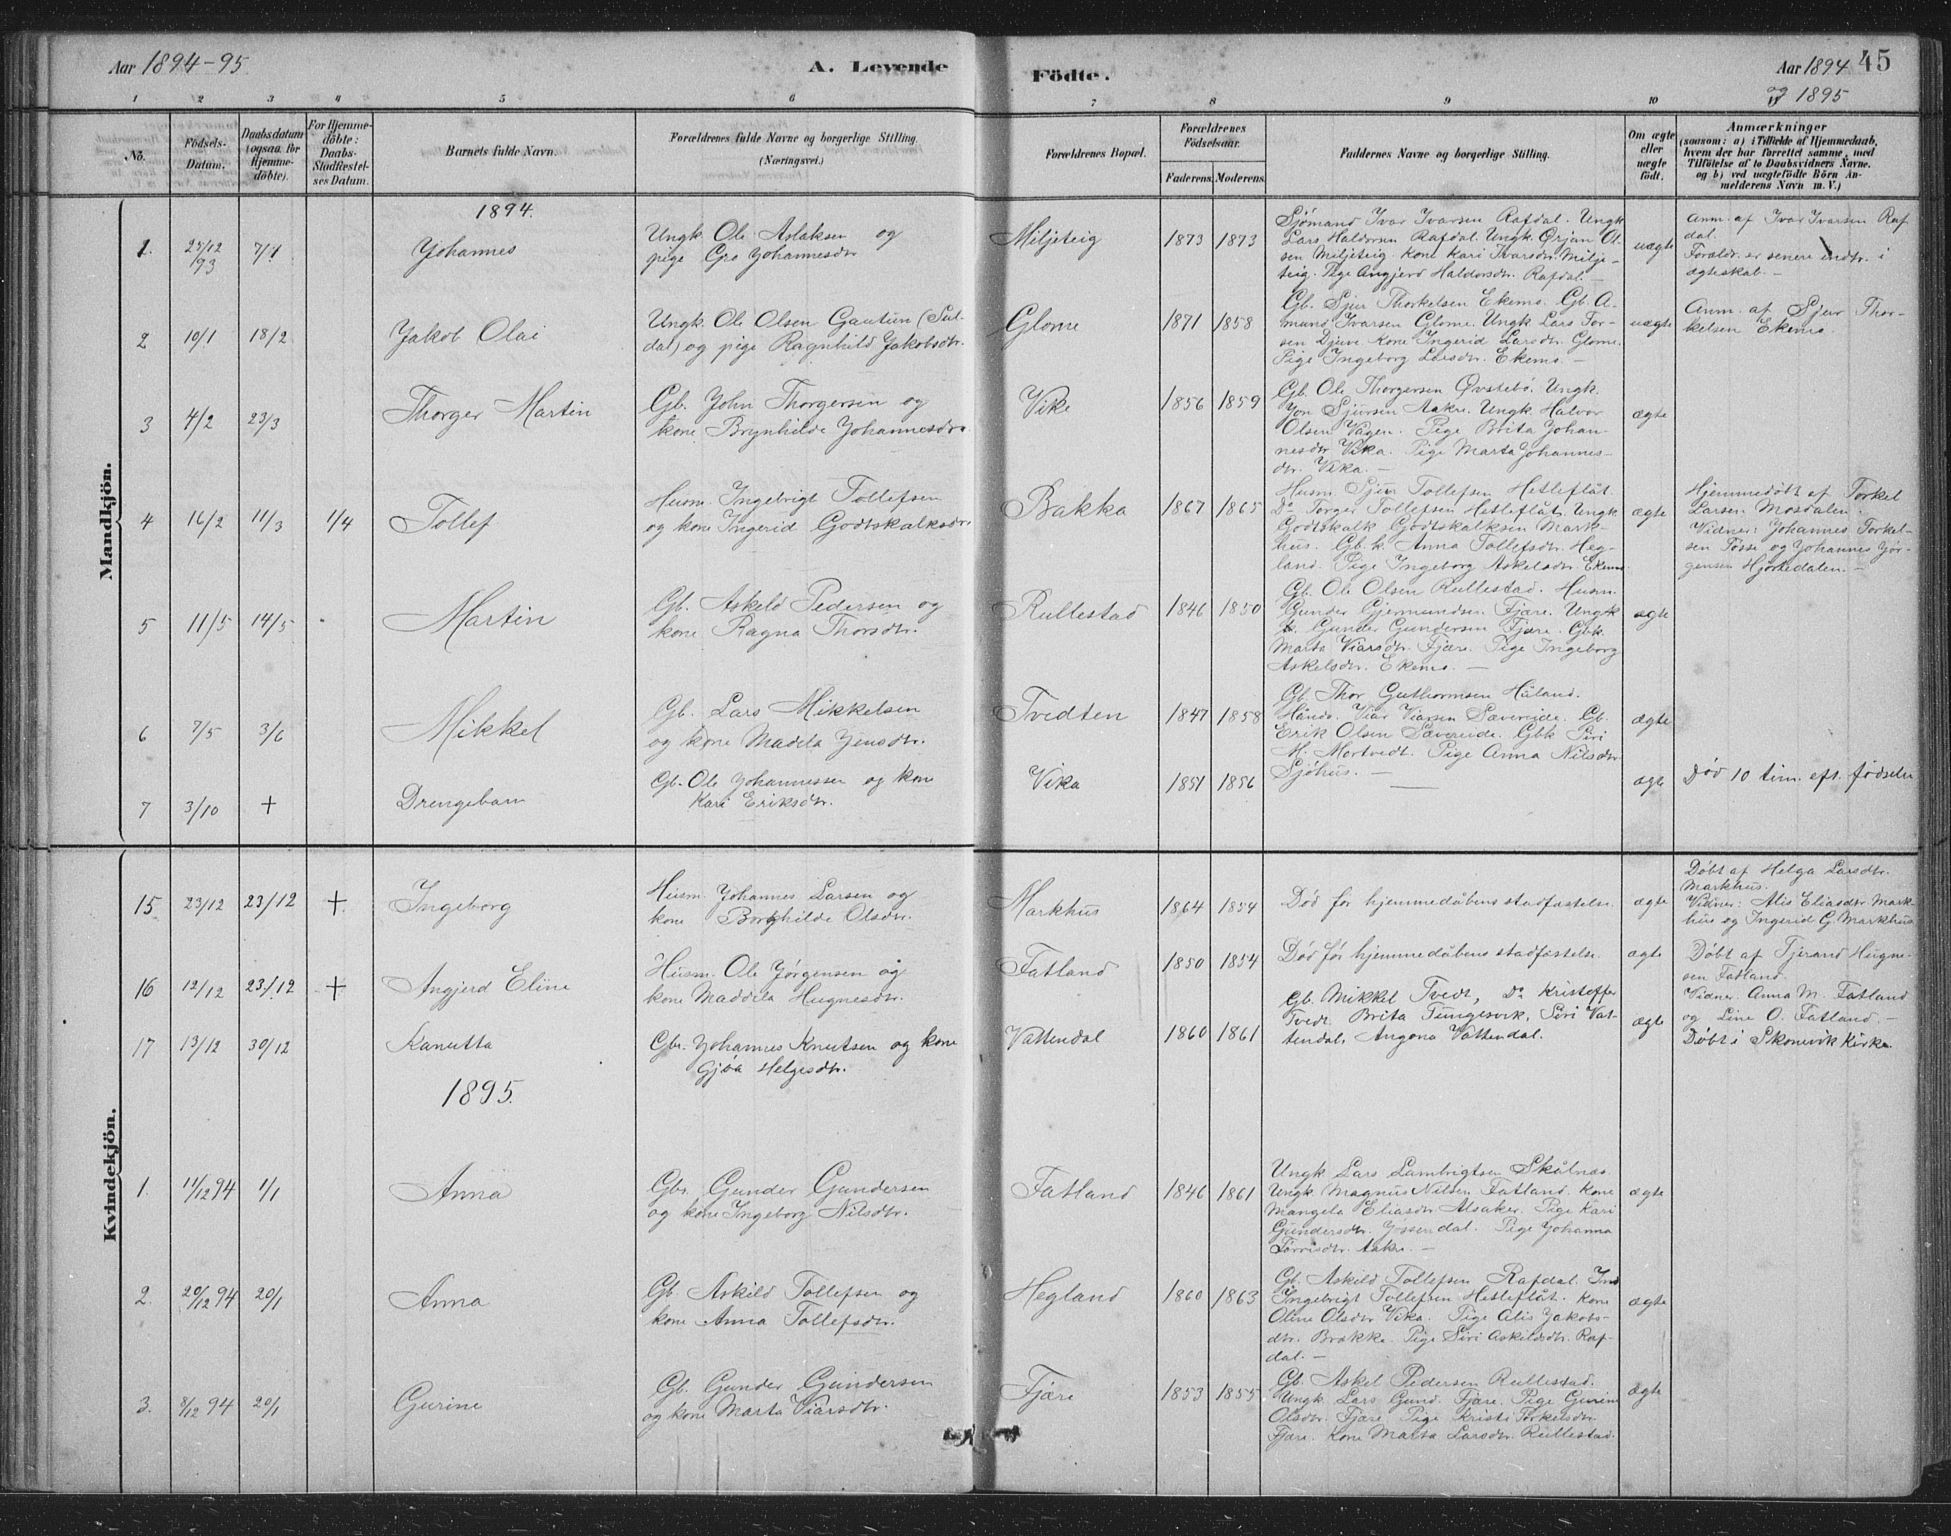 Aar 1894-95.
A. Levende
Födte.
Aar 1894 45
og 1895
1 2 3 4 5 6 7 8 9 10 11
No.
Födsels-Datum.
Daabsdatum (ogsaa for Hjemme-döbte).
For Hjemme-döbte: Daabs-Stadfæstel-ses Datum.
Barnets fulde Navn.
Forældrenes fulde Navne og borgerlige Stilling.
(Næringsvei.)
Forældrenes Bopæl.
Forældrenes Födselsaar.
Faderens. Moderens.
Faddernes Navne og borgerlige Stilling.
Om ægte eller uægte födt.
Anmærkninger
(saasom: a) i Tilfælde af Hjemmedaab, hvem der har forrettet samme, med Tilföielse af to Daabsvidners Navne. og b) ved uægtefödte Börn An-melderens Navn m. V.)
Mandkjön.
1894.
1. 27/12 93 7/1 Johannes
Ungk. Ole Aslaksen og
pige Gro Johannesdtr
Miljeteig 1873 1873
Sjömand Ivar Ivarsen Rafdal. Ungk
Lars Haldorsen Rafdal. Ungk. Ørjan Ol-
sen Miljeteig. Kone Kari Ivarsdtr. Milje-
teig. Pige Angjerd Haldorsdtr. Rafdal. —
uægte
Anm. af Ivar Ivarsen Raf
dal.
Foraldr. er senere indtr. i
ægteskab. —
2 10/1 18/2 Jakob Olai
Ungk. Ole Olsen Gautun (Sul-
dal) og pige Ragnhild Jakobsdtr.
Glome 1871 1858
Gb. Sjur Thorkelsen Ekemo. Gb. A-
mund Ivarsen Glome. Ungk Lars Tor-
sen Djuve. Kone Ingerid Larsdtr. Glome.
Pige Ingeborg Larsdtr. Ekemo. —
uægte
Anm. af Sjur Thor-
kelsen Ekemo.
3 4/2 23/3 Thorger Martin
Gb. John Thorgersen og
kone Brynhilde Johannesdtr.
Vike 1856 1859
Gb. Ole Thorgersen Øvstebö. Ungk.
Jon Sjursen Aakre. Ungk. Halvor
Olsen Vågen. Pige Brita Johan-
nesdtr. Vika. Pige Marta Johannes-
dtr. Vika. —
ægte
4 16/2 11/3 1/4 Tollef
Husm. Ingebrigt Tollefsen
og kone Ingerid Godtskalksdtr.
Bakka 1867 1865
Husm. Sjur Tollefsen Hetleflåt.
Do Torger Tollefsen Hetleflåt. Ungk
Godtskalk Godtskalksen Mark-
hus. Gb.k. Anna Tollefsdtr. Heg-
land. Pige Ingeborg Askelsdtr. Ekemo
ægte
Hjemmedöbt af Torkel
Larsen Mosdalen.
Vidner: Johannes Torkel-
sen Fösse og Johannes Jör-
gensen Hjortedalen. —
5 11/5 14/5 Martin
Gb. Askeld Pedersen og
kone Ragna Thorsdtr.
Rullestad 1846 1850
Gb. Ole Olsen Rullestad. Husm.
Gunder Gjermundsen Fjære. Ungk
Gunder Gundersen Fjære. Gbk.
Marta Viarsdtr. Fjære. Pige Ingeborg
Askelsdtr. Ekemo. —
ægte
6 7/5 3/6 Mikkel
Gb. Lars Mikkelsen
og kone Madela Jensdtr.
Tvedten 1847 1858
Gb. Thor Guthormsen Håland.
Viar Viarsen Sævereide. Gb.
Erik Olsen Sævereide. Gbk Siri
M. Mortvedt. Pige Anna Nilsdtr.
Sjöhus. —
ægte
7 3/10 + Drengebarn
Gb. Ole Johannessen og kone
Kari Eriksdtr.
Vika 1851 1856
—
ægte
Död 10 tim. eft. födselen
Kvindekjön.
15 23/12 23/12 + Ingeborg
Husm. Johannes Larsen og
kone Borghilde Olsdtr.
Markhus 1864 1854
Död för hjemmedåbens stadfæstelse.
ægte
Döbt af Helga Larsdtr.
Markhus.
Vidner: Alis Eliasdtr. Mark-
hus og Ingerid G. Markhus
16 12/12 23/12 + Angjerd Eline
Husm. Ole Jörgensen og
kone Maddela Hugnesdtr.
Fatland 1850 1854
Död för hjemmedåbens stadfæstelse.
ægte
Döbt af Tjerand Hugne-
sen Fatland.
Vidner. Anna M. Fatland
og Line O. Fatland. —
17 13/12 30/12 Kanutta
Gbr. Johannes Knutsen og kone
Gjöa Helgesdtr.
Vattendal 1860 1861
Gb. Mikkel Tvedt, Do Kristoffer
Tvedt. Brita Tungesvik, Siri Vat-
tendal, Angona Vattendal.
ægte
Döbt i Skonevik Kirke.
1895.
1. 11/12 94 1/1 Anna
Gbr. Gunder Gundersen
og kone Ingeborg Nilsdtr.
Fatland 1846 1861
Ungk. Lars Lambrigtsen Skålnæs
Ungk. Magnus Nilsen Fatland. Kone
Mangela Eliasdtr Alsaker. Pige Kari
Gundersdtr. Jössendal. Pige Johanna
Törrisdtr. Aakre. —
ægte
2. 20/12 94 20/1 Anna
Gb. Askild Tollefsen og
kone Anna Tollefsdtr.
Hegland 1860 1863
Gb. Askild Tollefsen Rafdal.
Ingebrigt Tollefsen Hetleflåt. Kone
Oline Olsdtr Vika. Pige Alis Jakobs-
dtr. Brakke. Pige Siri Askildsdtr. Raf-
dal. —
ægte
3. 8/12 94 20/1 Gurine
Gb. Gunder Gundersen
og kone Marta Viarsdtr.
Fjære 1853 1855
Gb. Askel Pedersen Rullestad.
Ungk. Lars Gund. Fjære. Pige Gurine
Olsdtr. Fjære. Pige Kristi Torkelsdtr.
Fjære. Kone Marta Larsdtr. Rullestad.
ægte